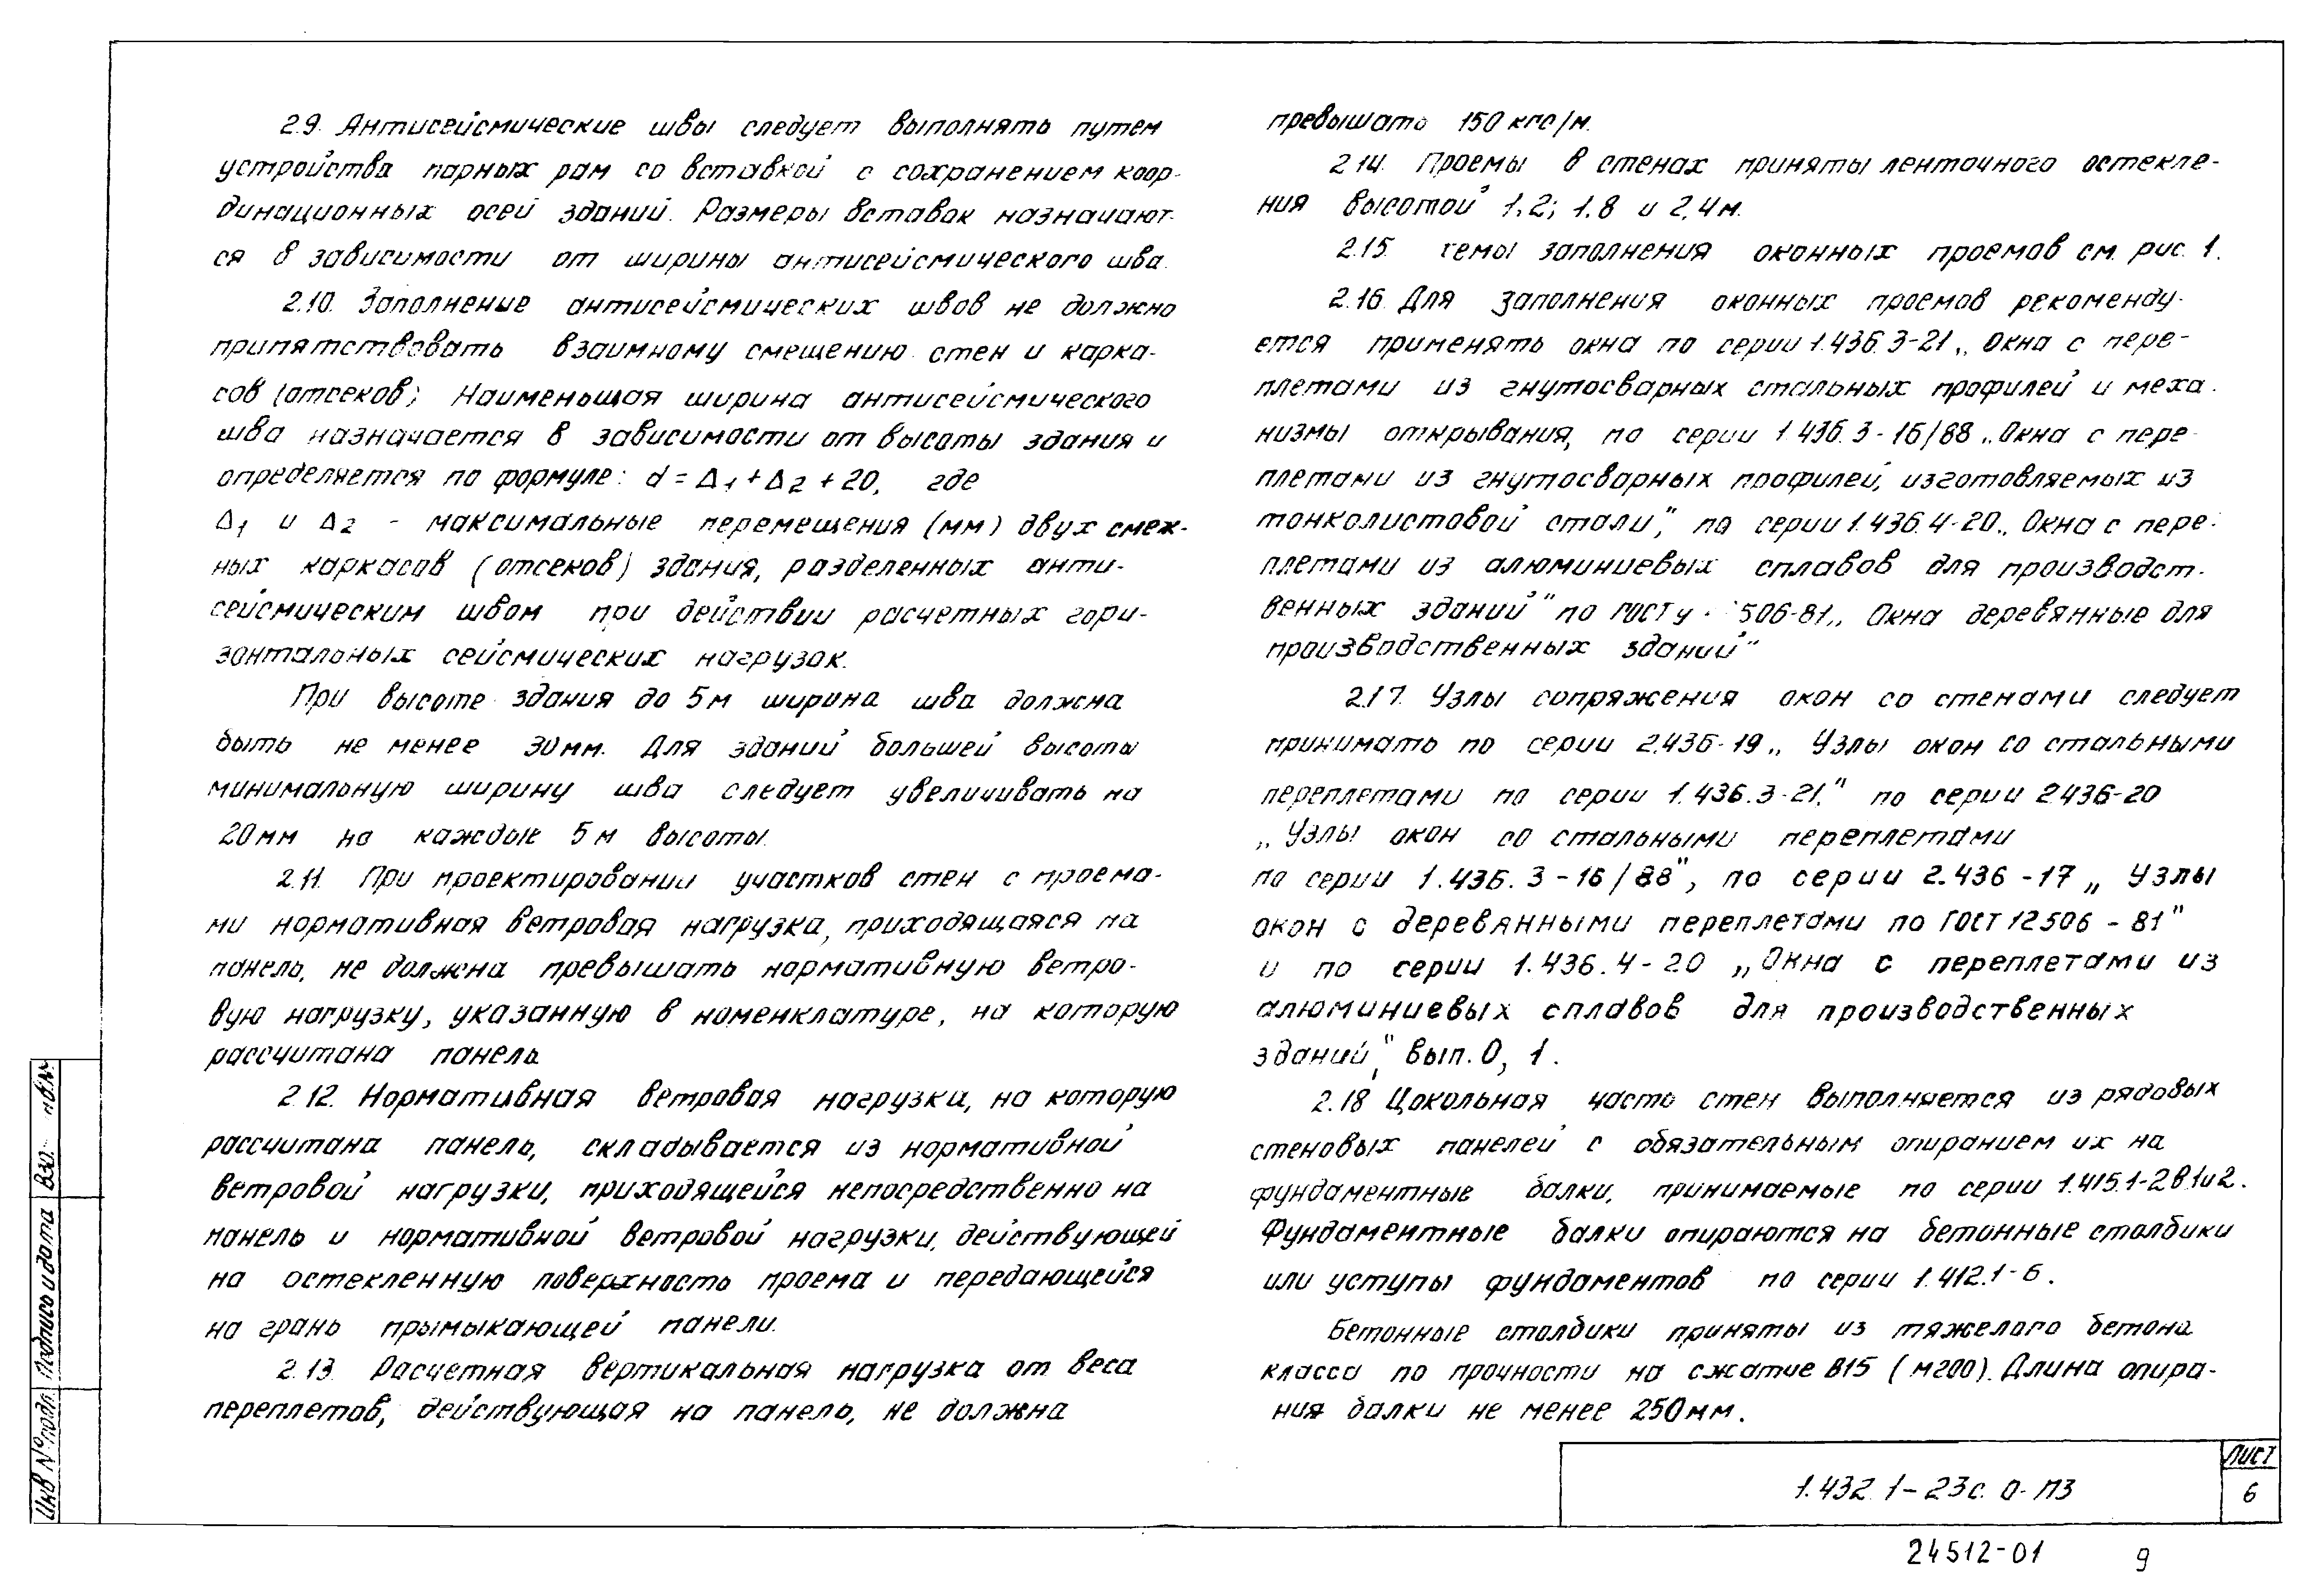 2.9. Антисейсмические швы следует выполнять путем
устройства парных рам со вставкой с сохранением коор-
динационных осей зданий. Размеры вставок назначают-
ся в зависимости от ширины антисейсмического шва.
2.10. Заполнение антисейсмических швов не должно
припятствовать взаимному смещению стен и карка-
сов (отсеков). Наименьшая ширина антисейсмического
шва назначается в зависимости от высоты здания и
определяется по формуле: d = Δ1 + Δ2 + 20, где
Δ1 и Δ2 - максимальные перемещения (мм) двух смеж-
ных каркасов (отсеков) здания, разделенных анти-
сейсмическим швом при действии расчетных гори-
зонтальных сейсмических нагрузок.
При высоте здания до 5м ширина шва должна
быть не менее 30мм. Для зданий большей высоты
минимальную ширину шва следует увеличивать на
20мм на каждые 5м высоты.
2.11. При проектировании участков стен с проема-
ми нормативная ветровая нагрузка, приходящаяся на
панель, не должна превышать нормативную ветро-
вую нагрузку, указанную в номенклатуре, на которую
рассчитана панель
2.12. Нормативная ветровая нагрузки, на которую
рассчитана панель, складывается из нормативной
ветровой нагрузки, приходящейся непосредственно на
панель и нормативной ветровой нагрузки, действующей
на остекленную поверхность проема и передающейся
на грань прымыкающей панели.
2.13. Расчетная вертикальная нагрузка от веса
переплетов, действующая на панель, не должна
превышать 150 кгс/м.
2.14. Проемы в стенах приняты ленточного остекле-
ния высотой 1,2; 1,8 и 2,4м.
2.15. темы заполнения оконных проемов см. рис. 1.
2.16. Для заполнения оконных проемов рекоменду-
ется применять окна по серии 1.436.3-21 „Окна с пере-
плетами из гнутосварных стальных профилей и меха-
низмы открывания, по серии 1.436.3-16/88 „Окна с пере-
плетами из гнутосварных профилей, изготовляемых из
тонколистовой стали", по серии 1.436.4-20 „Окна с пере-
плетами из алюминиевых сплавов для производст-
венных зданий" по ГОСТу 506-81 „Окна деревянные для
производственных зданий"
2.17. Узлы сопряжения окон со стенами следует
принимать по серии 2.436-19 „Узлы окон со стальными
переплетами по серии 1.436.3-21," по серии 2.436-20
„Узлы окон со стальными переплетами
по серии 1.436.3-16/88", по серии 2.436-17 „Узлы
окон с деревянными переплетами по ГОСТ 12506-81"
и по серии 1.436.4-20 „Окна с переплетами из
алюминиевых сплавов для производственных
зданий," вып. 0, 1.
2.18 Цокольная часть стен выполняется из рядовых
стеновых панелей с обязательным опиранием их на
фундаментные балки, принимаемые по серии 1.415.1-2 в.1и2.
Фундаментные балки опираются на бетонные столбики
или уступы фундаментов по серии 1.412.1-6.
Бетонные столбики приняты из тяжелого бетона
класса по прочности на сжатие В15 (М200). Длина опира-
ния балки не менее 250мм.
Инв № подл. Подпись и дата Вза. инв.№
1.432.1-23с.0-ПЗ
Лист
6
24512-01 9